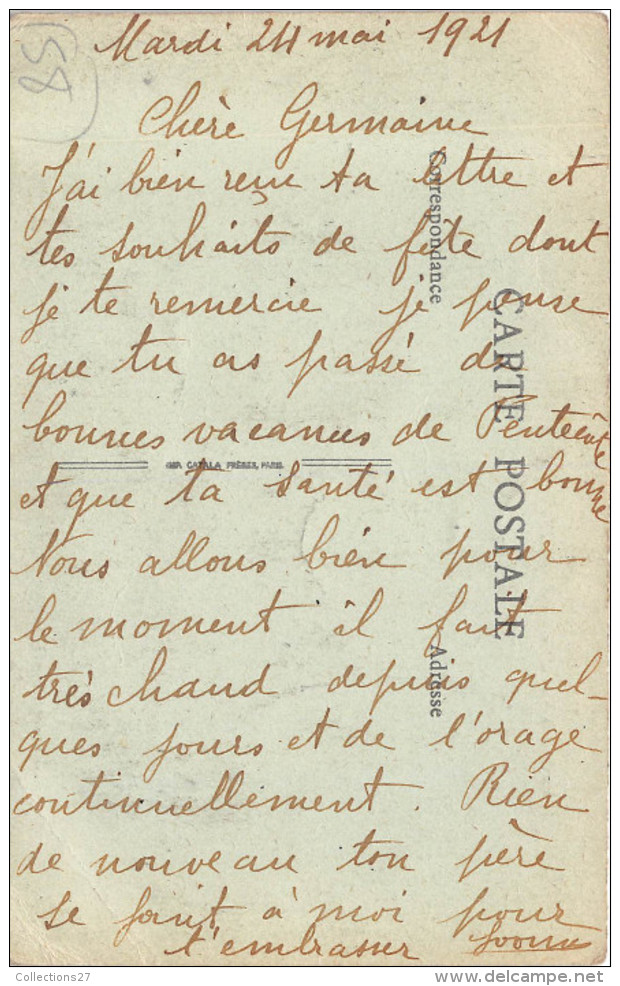 58
Mardi 24 mai 1921
Chère Germaine
J'ai bien reçu ta lettre et
tes souhaits de fête dont
je te remercie je pense
que tu as passé de
bonnes vacances de Pentecôte
et que ta santé est bonne
Nous allons bien pour
le moment il fait
très chaud depuis quel-
ques jours et de l'orage
continuellement. Rien
de nouveau ton père
se joint à moi pour
t'embrasser
Correspondance
CARTE POSTALE
Adresse
IMP. CATALA FRÈRES, PARIS
Collections27
delcampe.net